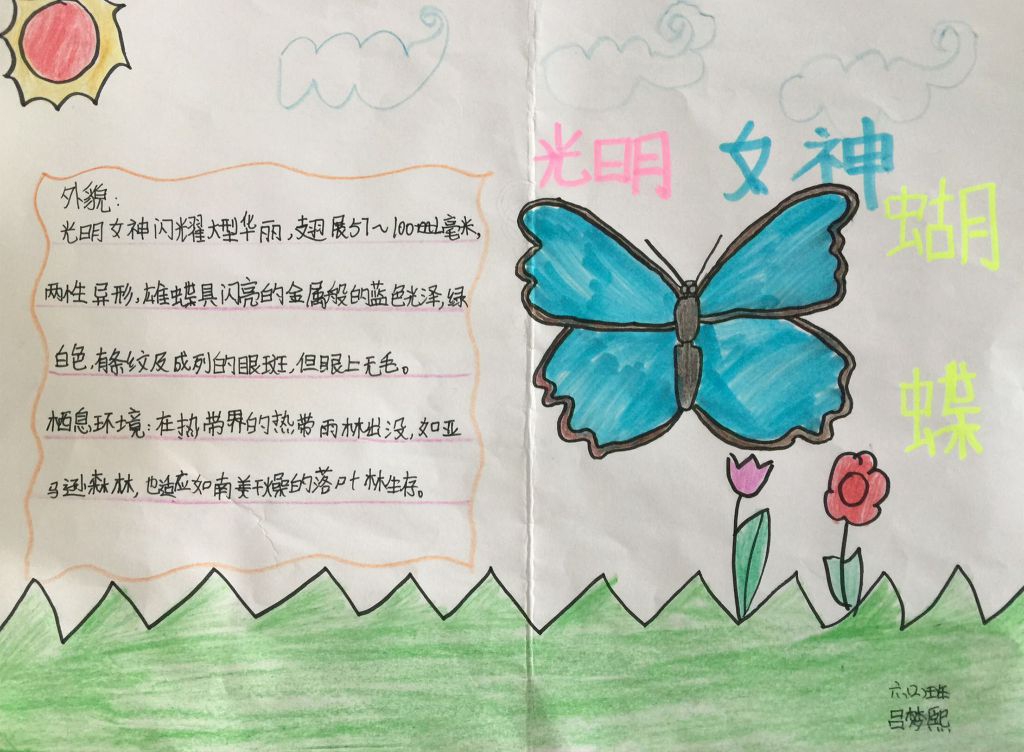 光明 女神
蝴
蝶
外貌:
光明女神闪耀大型华丽,翅展57~100mm毫米,
两性异形,雄蝶具闪亮的金属般的蓝色光泽,绿
白色,有条纹及成列的眼斑,但眼上无毛。
栖息环境:在热带界的热带雨林出没,如亚
马逊森林,也适应如南美干燥的落叶林生存。
吕梦熙